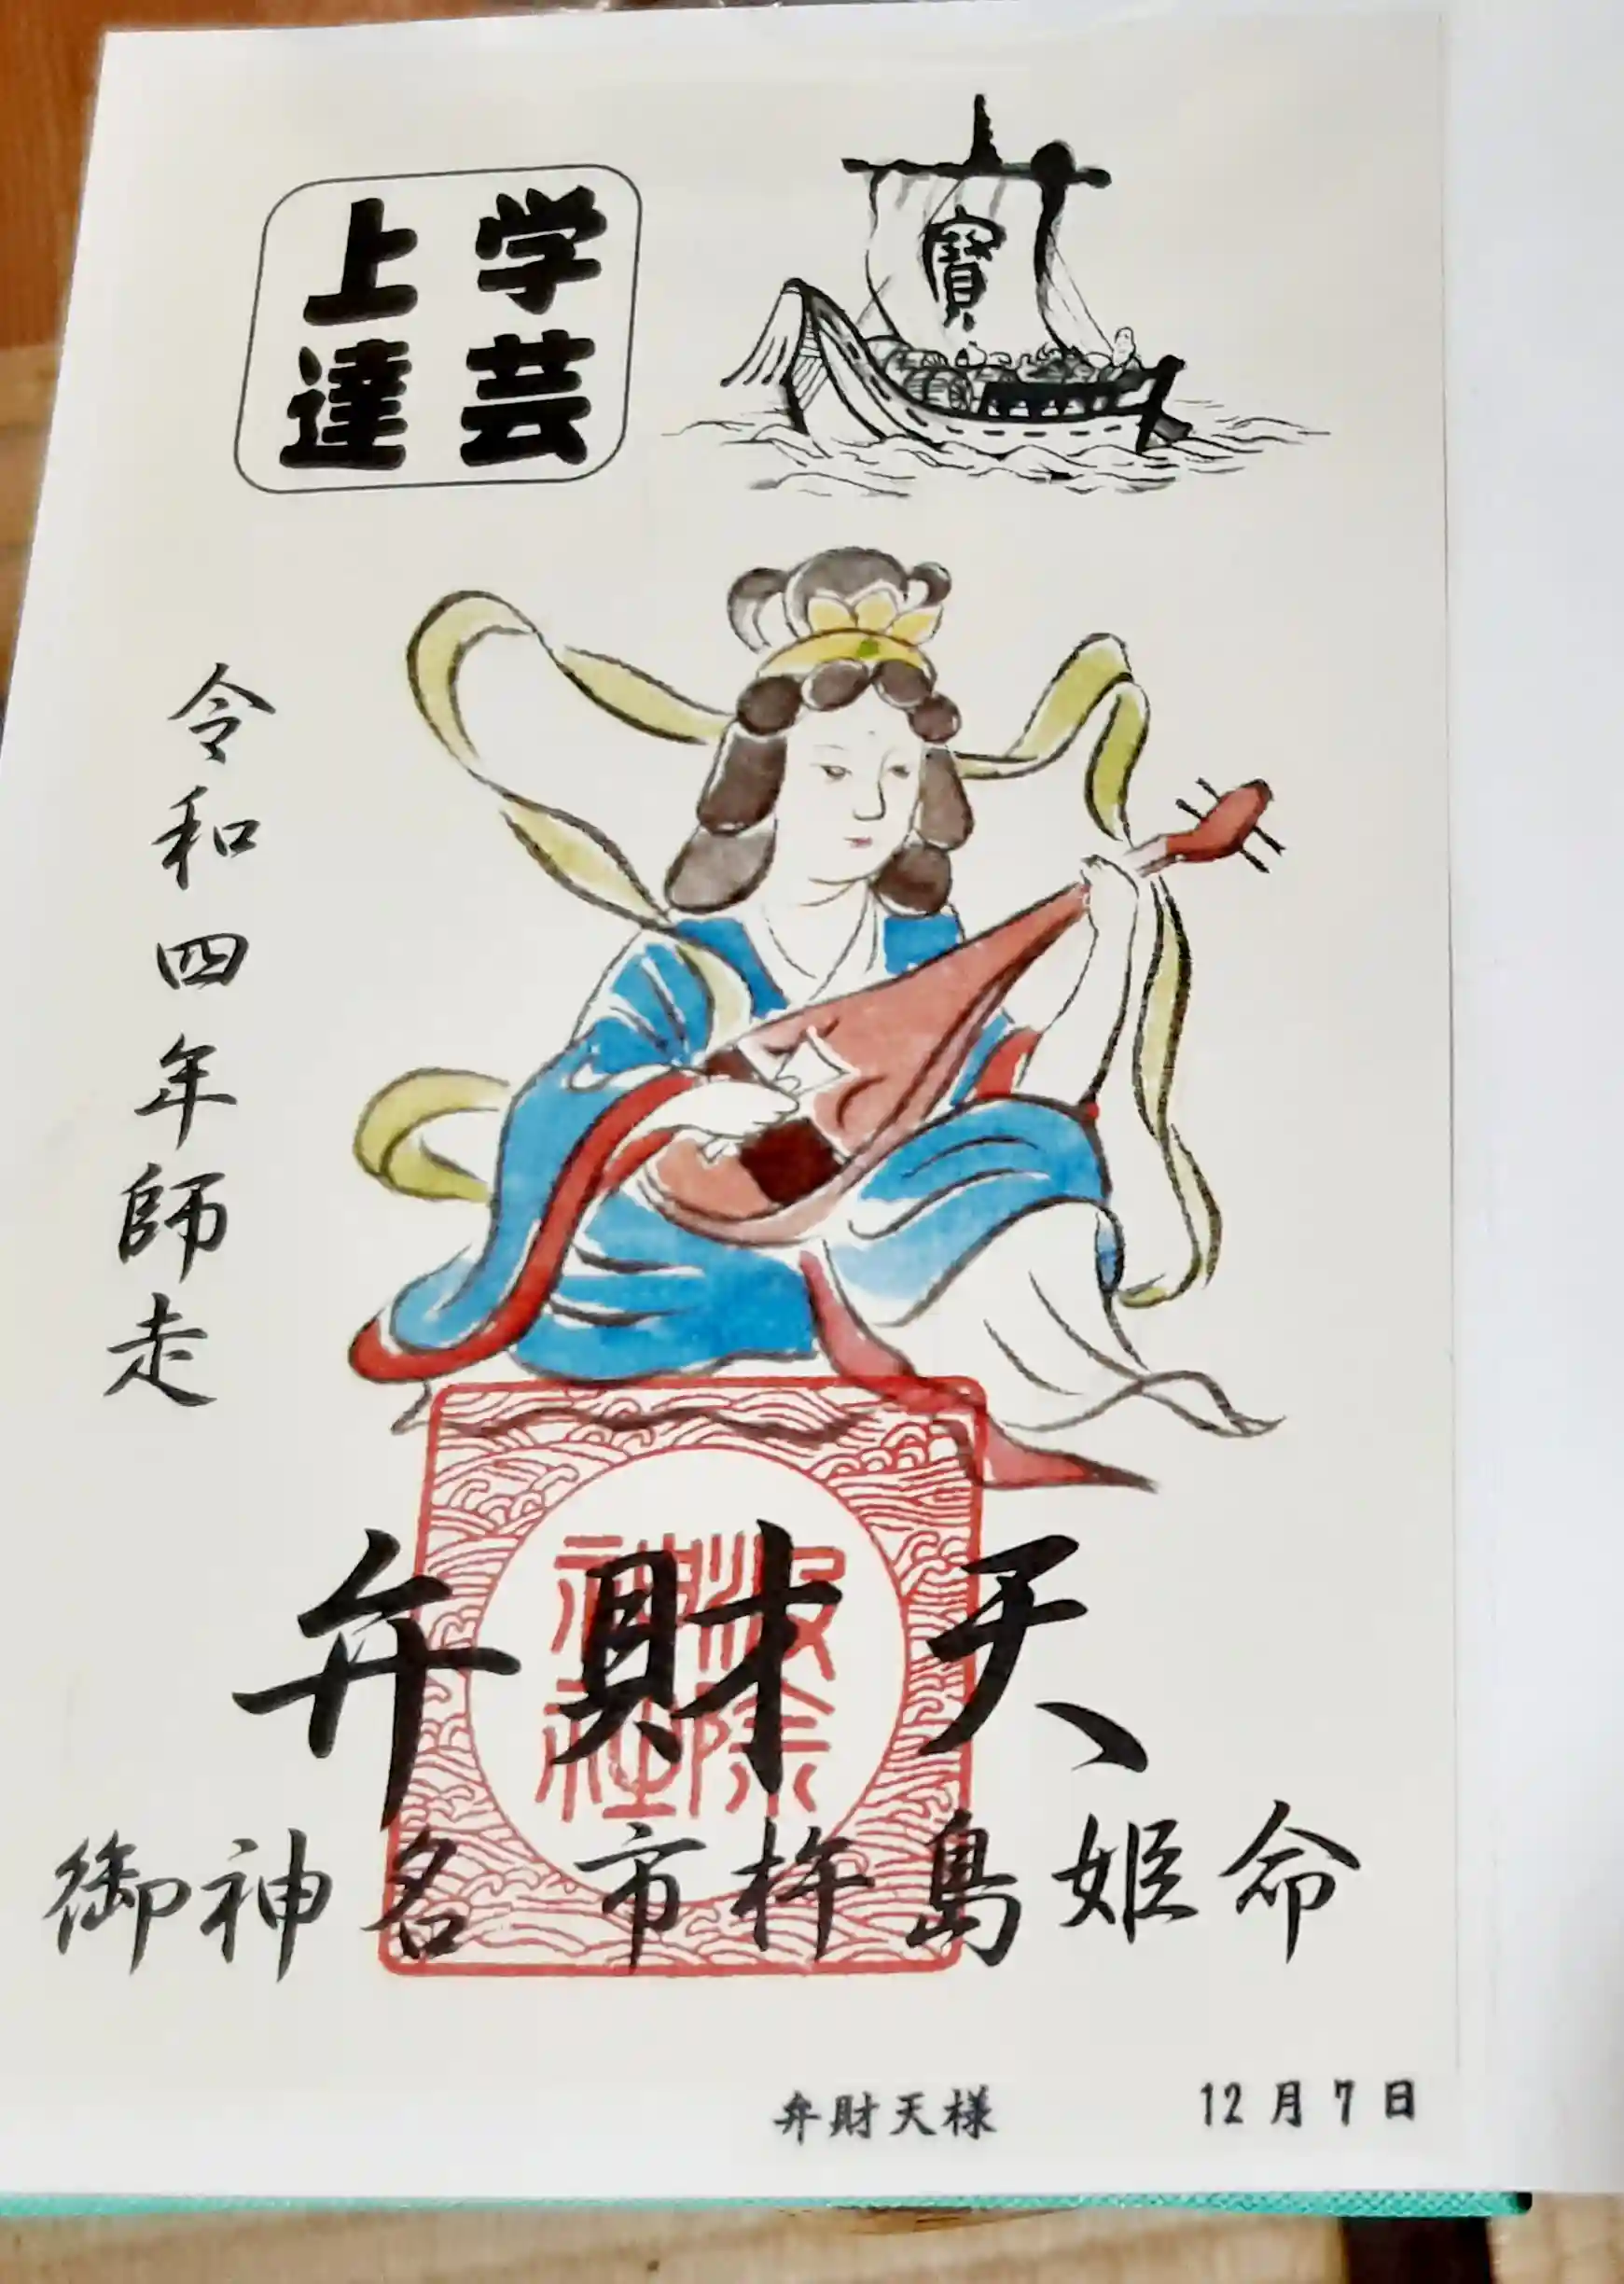 学芸
上達
寳
令和四年師走
弁財天
波除
神社
御神名 市杵島姫命
弁財天様 12月7日